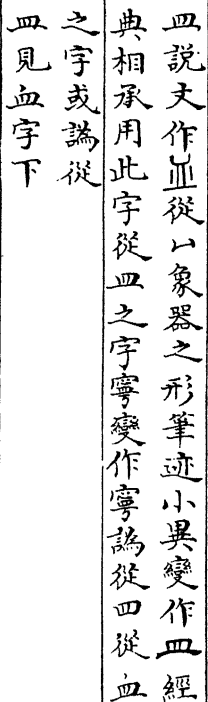 皿説文作𥁕從∧象器之形筆迹小異變作皿經
典相承用此字從皿之字寧變作寧譌從四從血
之字或譌從
皿見血字下